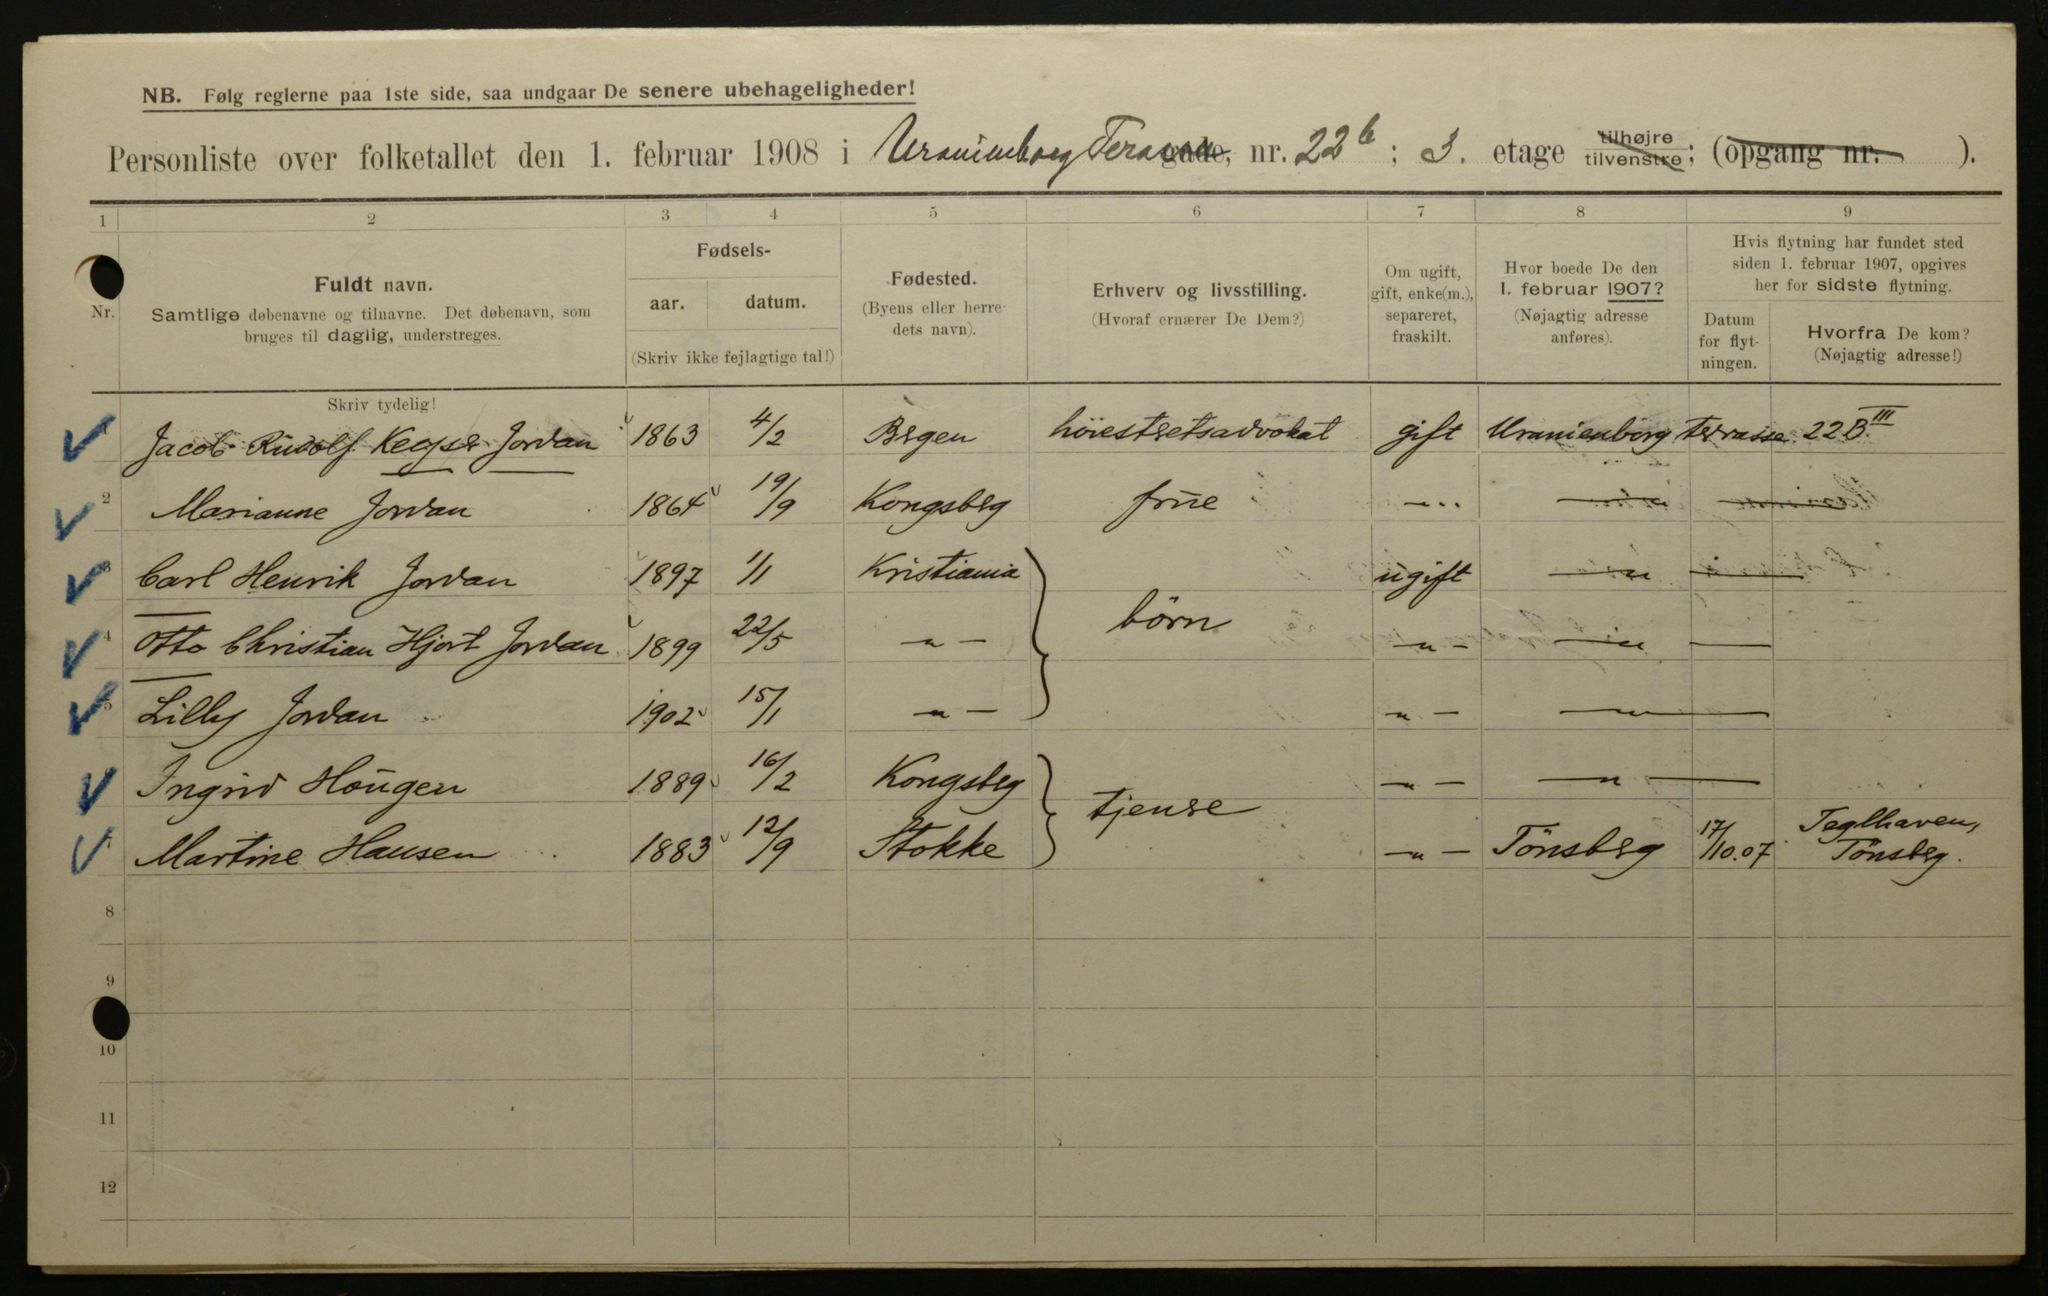 NB. Følg reglerne paa 1ste side, saa undgaar De senere ubehageligheder!
Personliste over folketallet den 1. februar 1908 i Uranienborg gade, nr. 22b; 3. etage tilhøjre tilvenstre; (opgang nr. ).
1 2 3 4 5 6 7 8 9
Nr.
Fuldt navn.
Samtlige døbenavne og tilnavne. Det døbenavn, som
bruges til daglig, understreges.
Fødsels-
aar. datum.
(Skriv ikke fejlagtige tal!)
Fødested.
(Byens eller herre-
dets navn).
Erhverv og livsstilling.
(Hvoraf ernærer De Dem?)
Om ugift,
gift, enke(m.),
separeret,
fraskilt.
Hvor boede De den
1. februar 1907?
(Nøjagtig adresse
anføres).
Hvis flytning har fundet sted
siden 1. februar 1907, opgives
her for sidste flytning.
Datum
for flyt-
ningen.
Hvorfra De kom?
(Nøjagtig adresse!)
Skriv tydelig!
Jacob Rudolf Keyser Jordan 1863 4/2 Bergen höiesteretsadvokat gift Uranienborg terrasse 22B III
2 Marianne Jordan 1864 19/9 Kongsberg frue - " - - " -
3 Carl Henrik Jordan 1897 1/1 Kristiania ugift - " -
börn
4 Otto Christian Hjort Jordan 1899 22/5 - " - - " - - " -
5 Lilly Jordan 1902 15/1 - " - - " - - " -
Ingrid Haugen 1889 16/2 Kongsberg - " - - " -
tjenere
Martine Hansen 1883 12/9 Stokke - " - Tönsberg 17/10.07 Teglhaven,
Tönsberg.
8
9
10
11
12